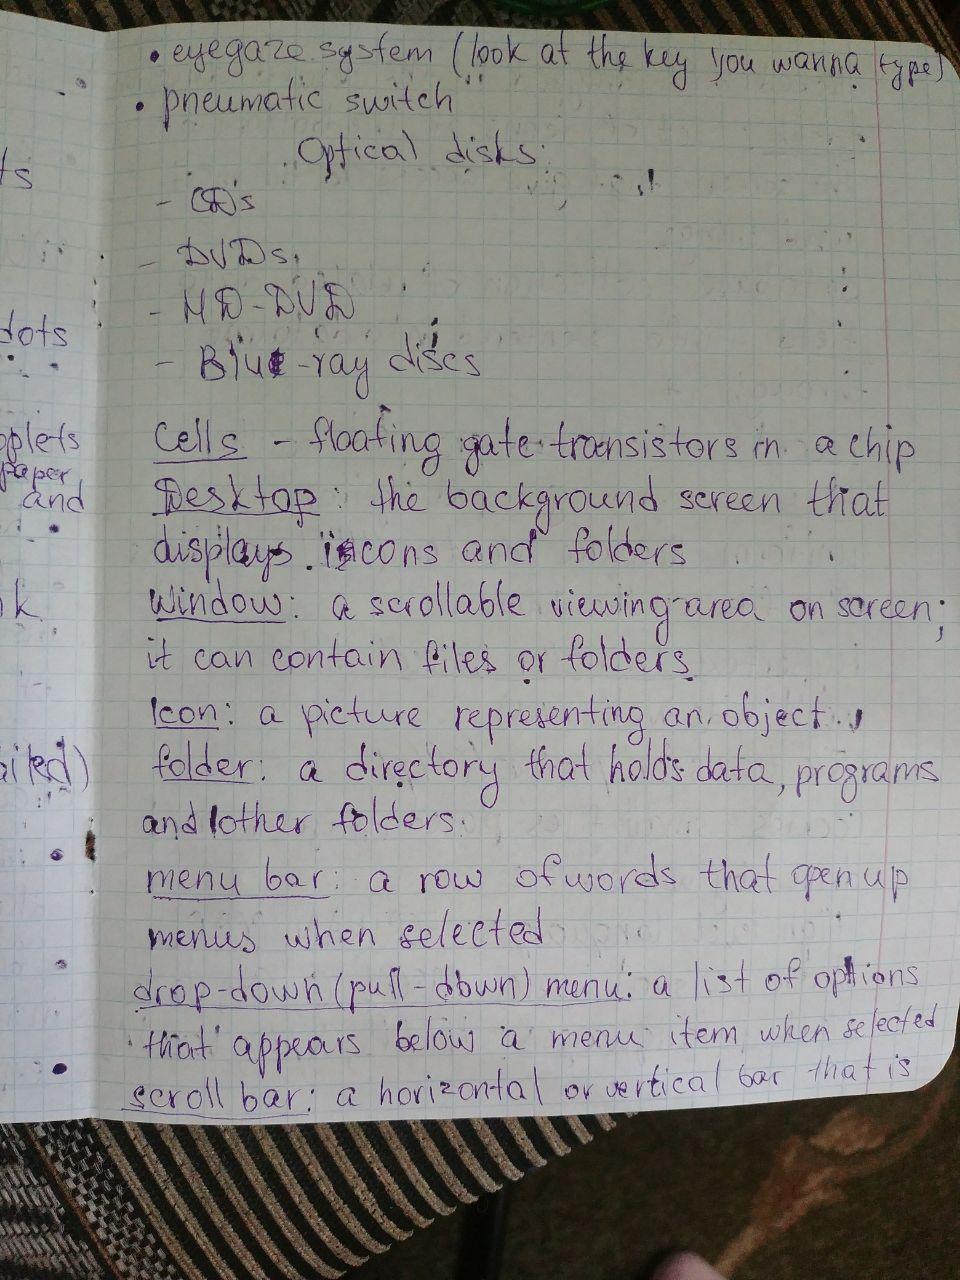 • eyegaze system (look at the key you wanna type)
• pneumatic switch
Optical disks:
- CDs
- DVDs
- HD-DVD
- Blue-ray discs
Cells - floating gate transistors in a chip
Desktop: the background screen that
displays icons and folders
Window: a scrollable viewing area on screen;
it can contain files or folders
Icon: a picture representing an object.
folder: a directory that holds data, programs
and other folders.
menu bar: a row of words that open up
menus when selected
drop-down (pull-down) menu: a list of options
that appears below a menu item when selected
scroll bar: a horizontal or vertical bar that is
ts
dots
plets
paper
and
k
ailed)